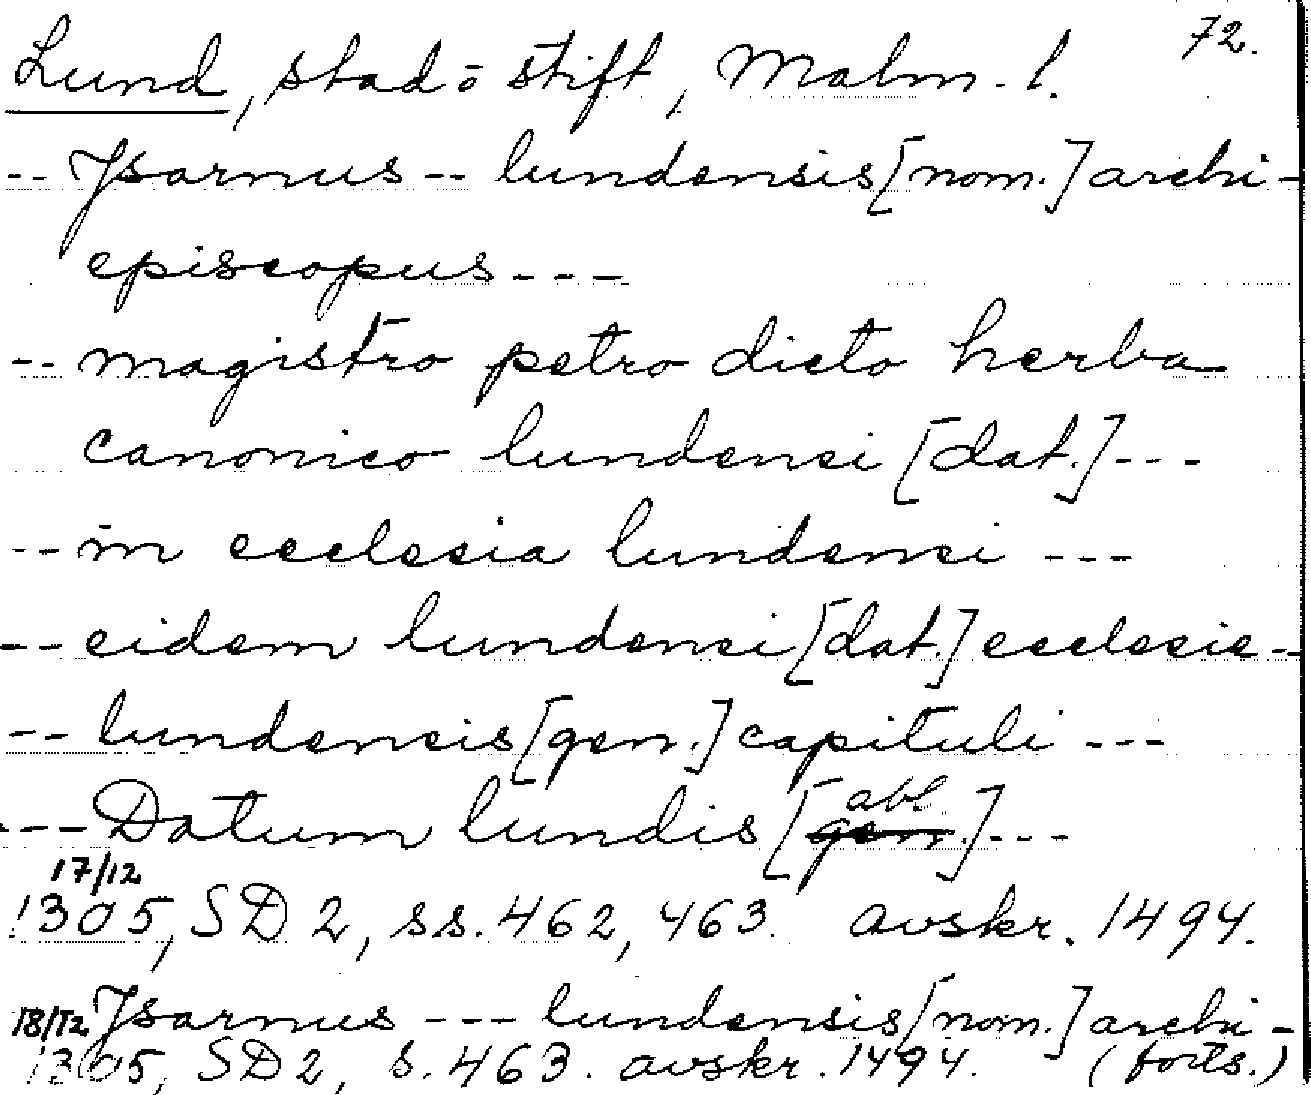 72.
Lund, stad o stift, Malm. l.
-- Ysarnus -- lundensis [nom.] archi-
episcopus ---
-- magistro petro dicto herba
canonico lundensi [dat.] ---
-- in ecclesia lundensi ---
-- eidem lundensi [dat.] ecclesie --
-- lundensis [gen.] capituli ---
--- Datum lundis [gen. abl.] ---
17/12
1305, SD 2, ss. 462, 463. avskr. 1494.
18/12 Ysarnus --- lundensis [nom.] archi-
1305, SD 2, s. 463. avskr. 1494. (forts.)